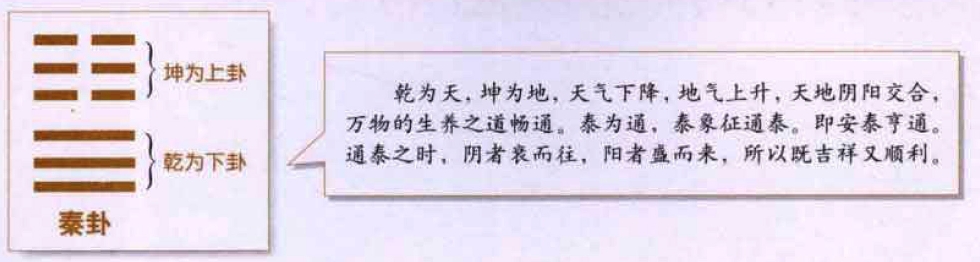 坤为上卦
乾为下卦
秦卦
乾为天，坤为地，天气下降，地气上升，天地阴阳交合，
万物的生养之道畅通。泰为通，泰象征通泰。即安泰亨通。
通泰之时，阴者衰而往，阳者盛而来，所以既吉祥又顺利。